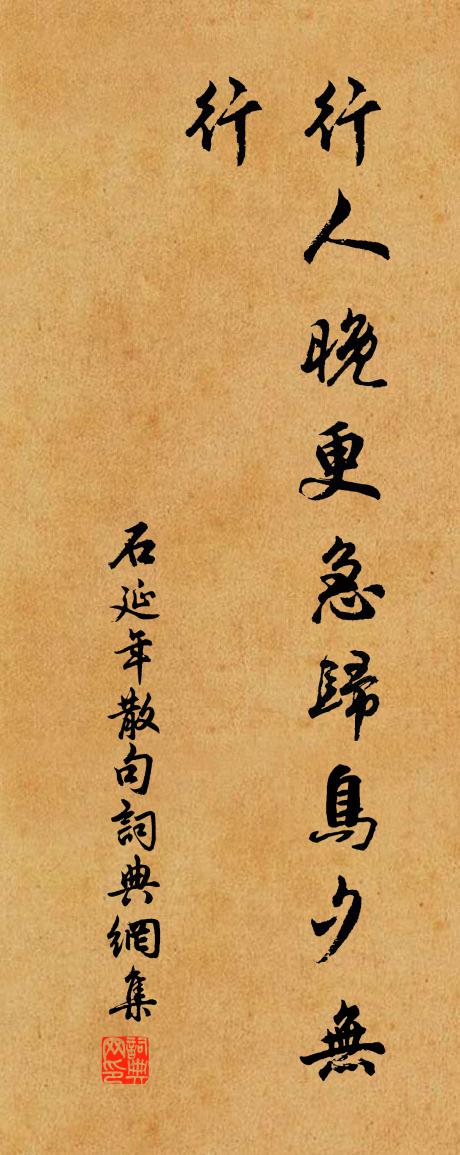 行人晚更急歸鳥夕無
行
石延年散句詞典網集
詞典网印